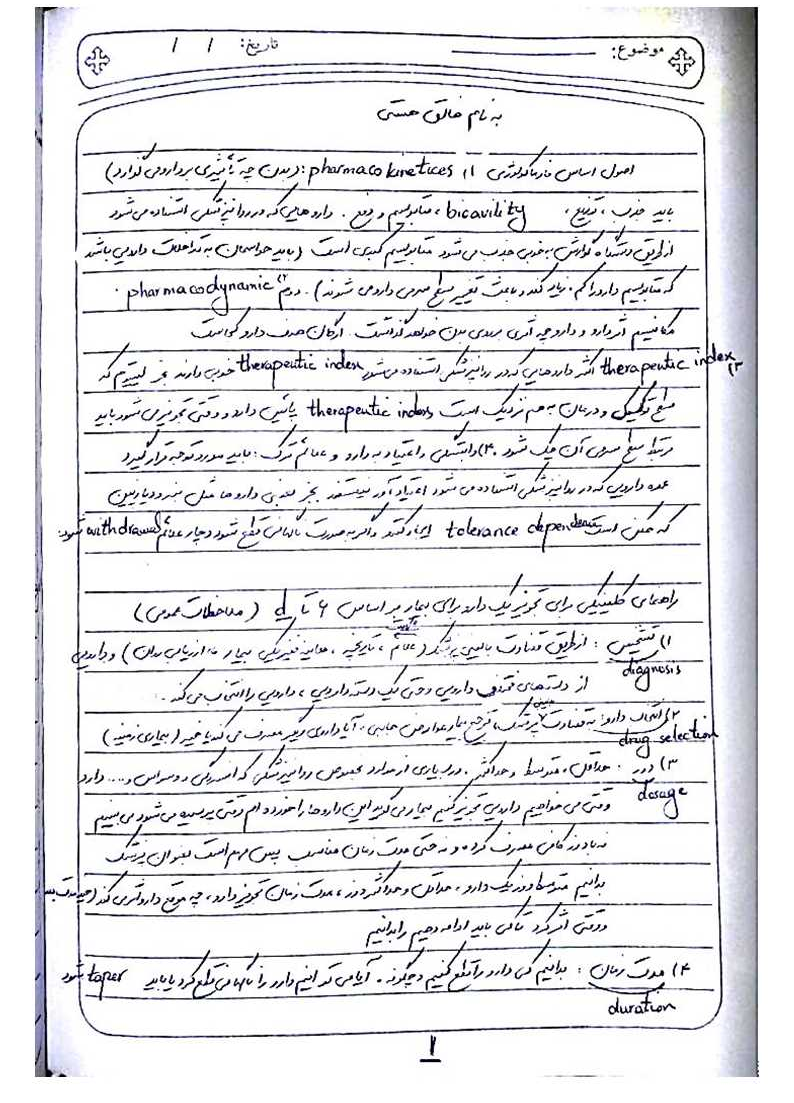 موضوع: تاریخ: / /
به نام خالق هستی
اصول اساسی فارماکولوژی ۱) pharmaco kinetices : (بدن چه تأثیری بر دارو می گذارد)
باید جذب، توزیع، bioavility، متابولیسم و دفع. داروهایی که در روانپزشکی استفاده می شود
از طریق دستگاه گوارش به خوبی جذب می شود متابولیسم کبدی است (باید حواسمان به تداخلات دارویی باشد
که متابولیسم دارو را کم، زیاد کند و باعث تغییر سطح سرمی دارو می شوند). دوم ۲) pharmacodynamic.
مکانیسم اثر دارو و دارو چه اثری بر روی بدن خواهد گذاشت. ارگان هدف دارو کجاست
۳) therapeutic index اکثر داروهایی که در روانپزشکی استفاده می شود therapeutic index خوبی دارند بجز لیتیوم که
سطح توکسیک و درمان به هم نزدیک است therapeutic index پائین دارد و وقتی تجویز می شود باید
مرتبط سطح سرمی آن چک شود. ۴) وابستگی و اعتیاد به دارو و علائم ترک: باید مورد توجه قرار گیرد
عمده دارویی که در روانپزشکی استفاده می شود اعتیاد آور نیستند بجز بعضی داروها مثل بنزودیازپین
که ممکن است tolerance dependence ایجاد کند و اگر به صورت ناگهانی قطع شود دچار علائم withdrawal شود
راهنمای کلینیکی برای تجویز یک دارو برای بیمار بر اساس ۶ تا d (ملاحظات عمومی)
۱) تشخیص: از طریق قضاوت بالینی پزشک (علائم، تاریخچه، معاینه فیزیکی بیمار، ارزیابی روان) و دارویی
diagnosis از دسته های مختلف دارویی وقتی یک دسته دارویی، دارویی را انتخاب می کند.
۲) انتخاب دارو: به قضاوت بالینی پزشک، ترجیح بیمار، عوارض جانبی، آیا داروی دیگر مصرف می کند یا خیر (بیماری زمینه)
drug selection
۳) دوز: حداقل، متوسط و حداکثر. در بسیاری از موارد بخصوص روانپزشکی که افسردگی و وسواس و... دارد
dosage وقتی می خواهیم دارویی تجویز کنیم بیمار می گوید این داروها را خورده ام وقتی پرسیده می شود می بینیم
نه با دوز کافی مصرف کرده و نه حتی مدت زمان مناسب پس مهم است بعنوان پزشک
بدانیم متوسط دوز یک دارو، حداقل و حداکثر دوز، مدت زمان تجویز دارو، چه موقع دارو اثر می کند (چه مدت بعد
و وقتی اثر کرد تا کی باید ادامه دهیم را بدانیم
۴) مدت زمان: بدانیم کی دارو را قطع کنیم و چگونه. آیا می توانیم دارو را ناگهانی قطع کرد یا باید taper شود
duration
1